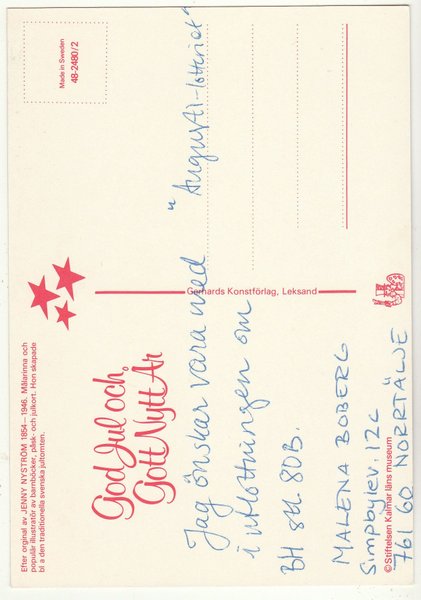 Efter orginal av JENNY NYSTRÖM 1854 – 1946. Målarinna och
populär illustratör av barnböcker, påsk- och julkort. Hon skapade
bl a den traditionella svenska jultomten.
God Jul och
Gott Nytt År
Made in Sweden
48-2480/2
Gerhards Konstförlag, Leksand
Jag önskar vara med "Augusti-lotteriet"
i utlottningen om
BH stl. 80B.
MALENA BOBERG
Simpbylev. 12c
761 60 NORRTÄLJE
© Stiftelsen Kalmar läns museum